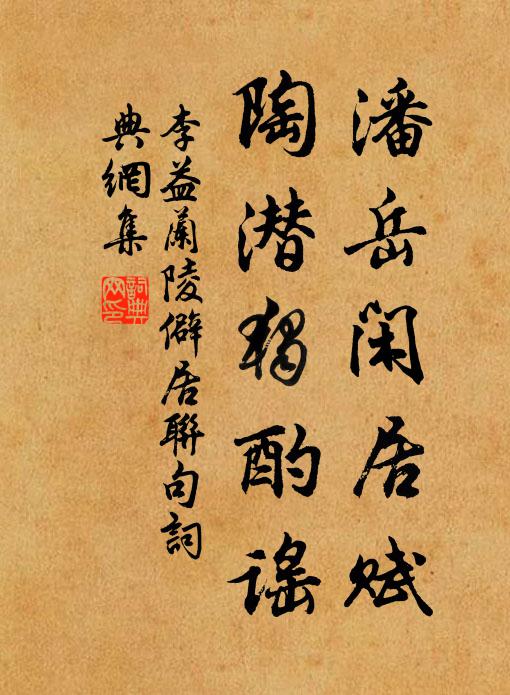 潘岳闲居赋
陶潜独酌谣
李益蘭陵僻居聯句詞
典網集
詞典
网印